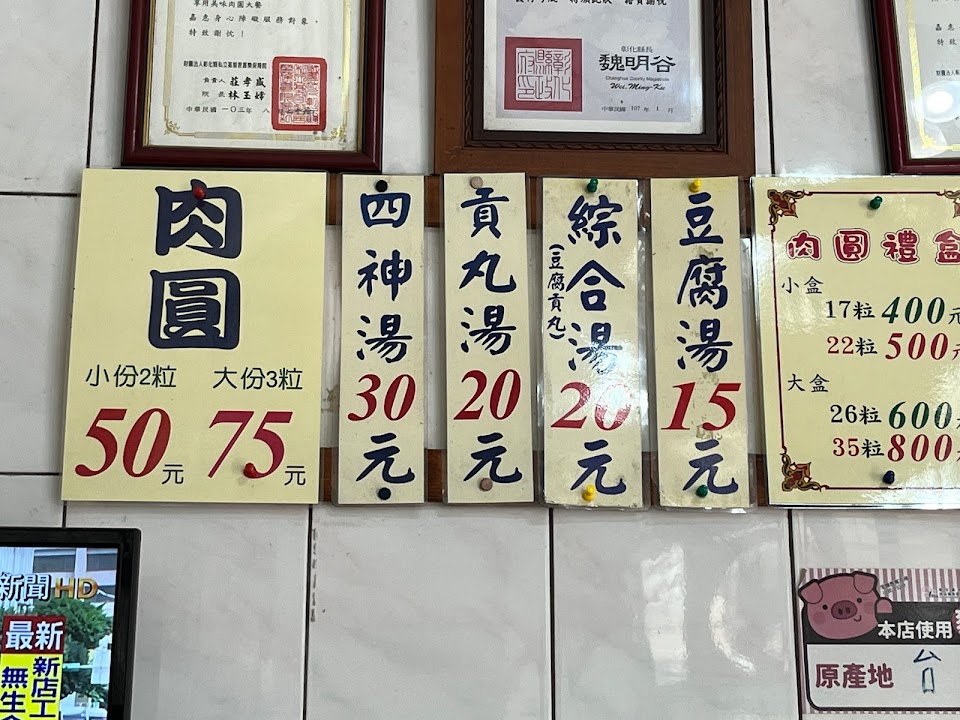 享用美味肉圓大餐
嘉惠身心障礙服務對象，
特致謝忱！
財團法人彰化縣私立基督教喜樂保育院
負責人 莊孝盛
院長 林玉嫥
中華民國一〇三年 八
彰化縣長
魏明谷
Changhua County Magistrate
Wei, Ming-Ku
中華民國 107 年 1 月
肉圓
小份2粒 大份3粒
50元 75元
四神湯30元
貢丸湯20元
綜合湯20元
(豆腐貢丸)
豆腐湯15元
肉圓禮盒
小盒
17粒 400元
22粒 500元
大盒
26粒 600元
35粒 800元
新聞HD
最新
新店工
無生命
本店使用
原產地 台